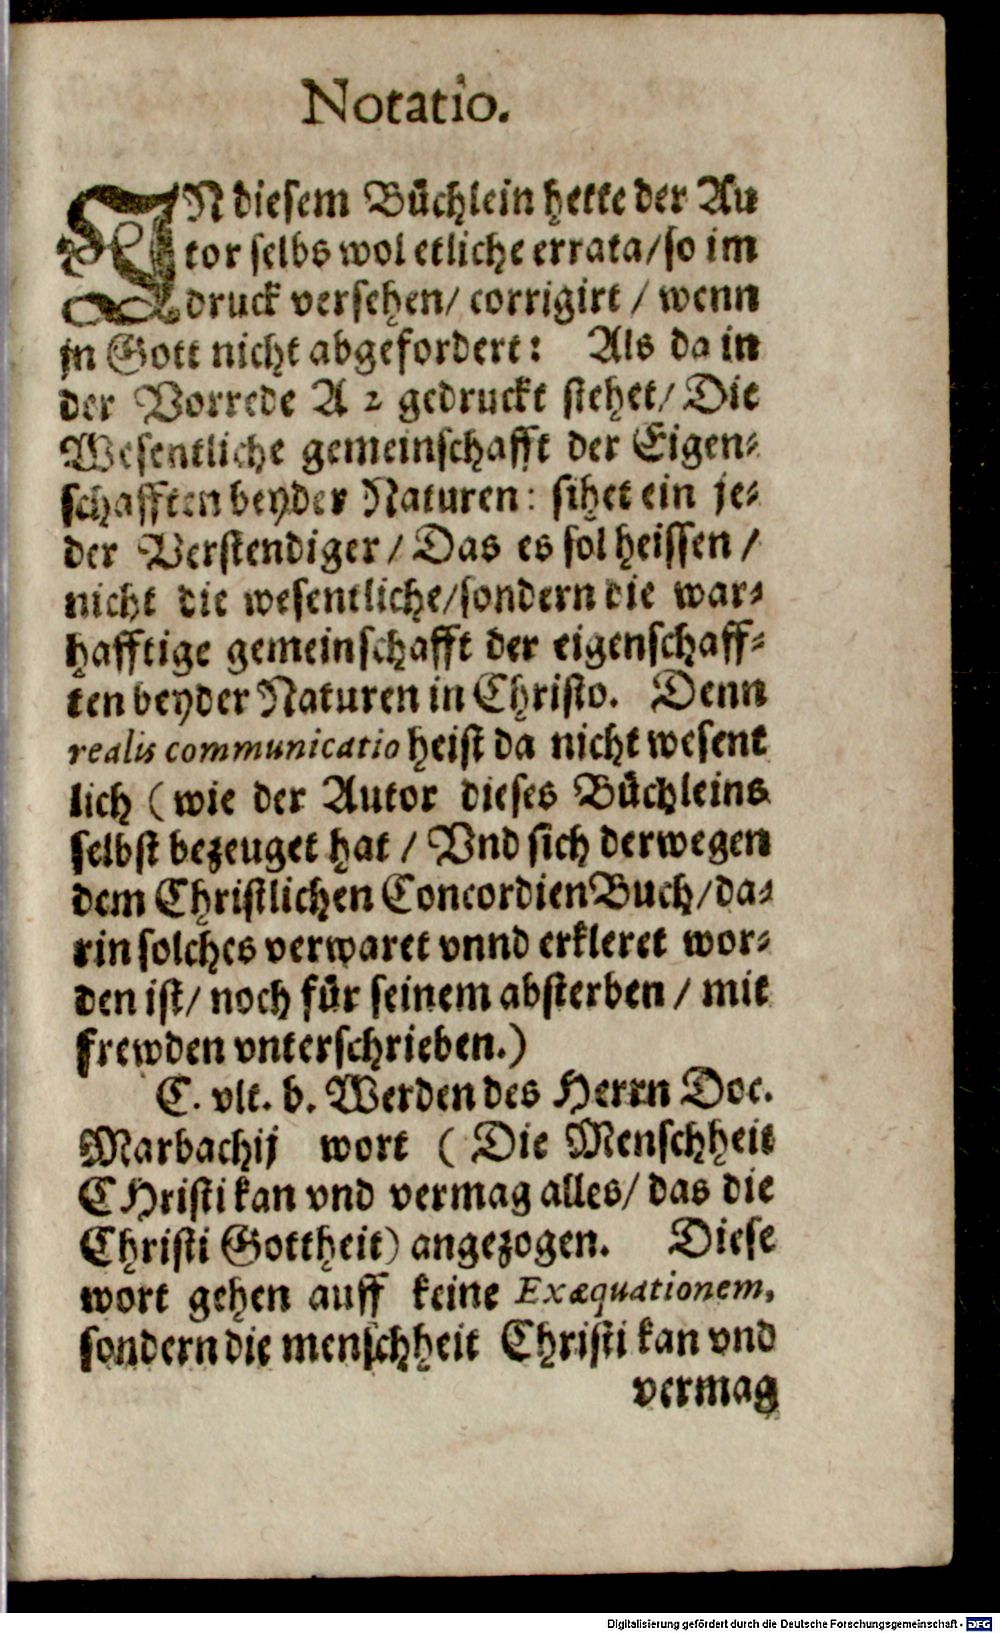 Notatio.
IN diesem Bůchlein hette der Au
tor selbs wol etliche errata/so im
druck versehen/ corrigirt / wenn
jn Gott nicht abgefordert: Als da in
der Vorrede A 2 gedruckt stehet/ Die
Wesentliche gemeinschafft der Eigen-
schafften beyder Naturen: sihet ein je-
der Verstendiger / Das es sol heissen /
nicht die wesentliche/sondern die war-
hafftige gemeinschafft der eigenschaff-
ten beyder Naturen in Christo. Denn
realis communicatio heist da nicht wesent
lich (wie der Autor dieses Bůchleins
selbst bezeuget hat / Vnd sich derwegen
dem Christlichen ConcordienBuch/da-
rin solches verwaret vnnd erkleret wor-
den ist/ noch fůr seinem absterben / mit
frewden vnterschrieben.)
C. vlt. b. Werden des Herrn Doc.
Marbachij wort ( Die Menschheit
CHristi kan vnd vermag alles/ das die
Christi Gottheit) angezogen. Diese
wort gehen auff keine Exæquationem,
sondern die menschheit Christi kan vnd
vermag
Digitalisierung gefördert durch die Deutsche Forschungsgemeinschaft - DFG